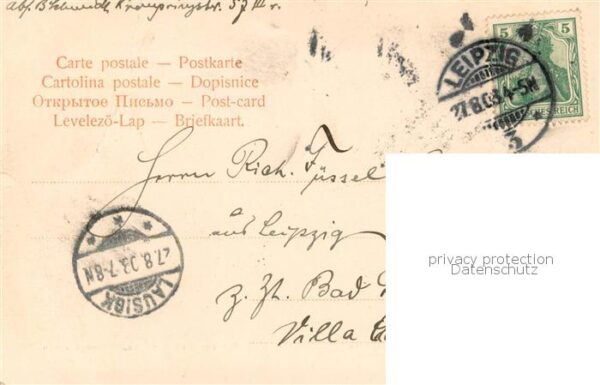 Abs. B. Schmidt, Kronprinzstr. 57 III r.
Carte postale — Postkarte
Cartolina postale — Dopisnice
Открытое Письмо — Post-card
Levelező-Lap — Briefkaart.
5 5
LEIPZIG
27.8.03.4-5N
5
Herrn Rich. Füssel
aus Leipzig
z. Zt. Bad
Villa
27.8.03.7-8N
LAUSIGK
privacy protection
Datenschutz